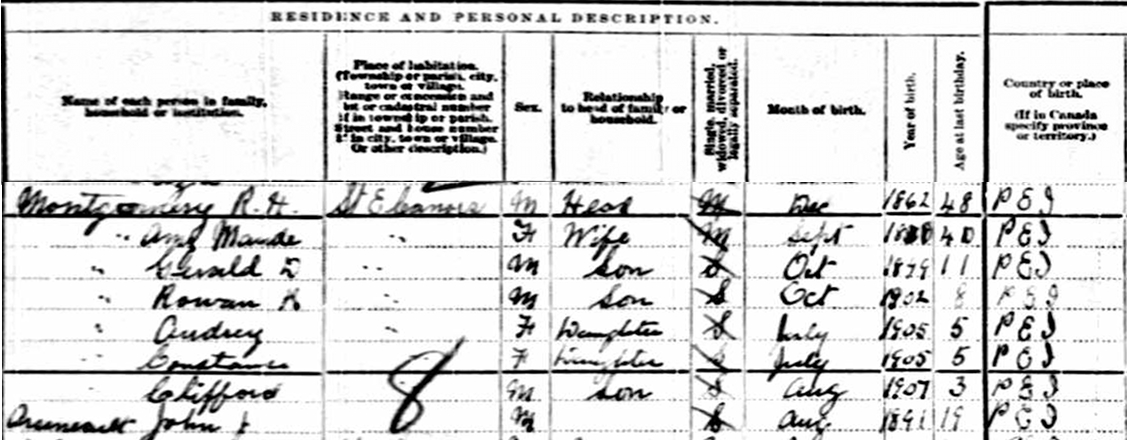 RESIDENCE AND PERSONAL DESCRIPTION.
Name of each person in family, household or institution.
Place of habitation. (Township or parish, city, town or village. Range or concession and lot or cadastral number if in township or parish. Street and house number if in city, town or village. Or other description.)
Sex.
Relationship to head of family or household.
Single, married, widowed, divorced or legally separated.
Month of birth.
Year of birth.
Age at last birthday.
Country or place of birth. (If in Canada specify province or territory.)
Montgomery R. H. St Eleanors M Head M Dec 1862 48 P E I
" Amy Maude " F Wife M Sept 40 P E I
" Gerald D " M Son S Oct 1899 11 P E I
" Rowan " M Son S Oct 1902 8 P E I
" Audrey " F Daughter S July 1905 5 P E I
" Constance F Daughter S July 1905 5 P E I
" Clifford 8 M Son S Aug 1907 3 P E I
John J M S Aug 1891 19 P E I